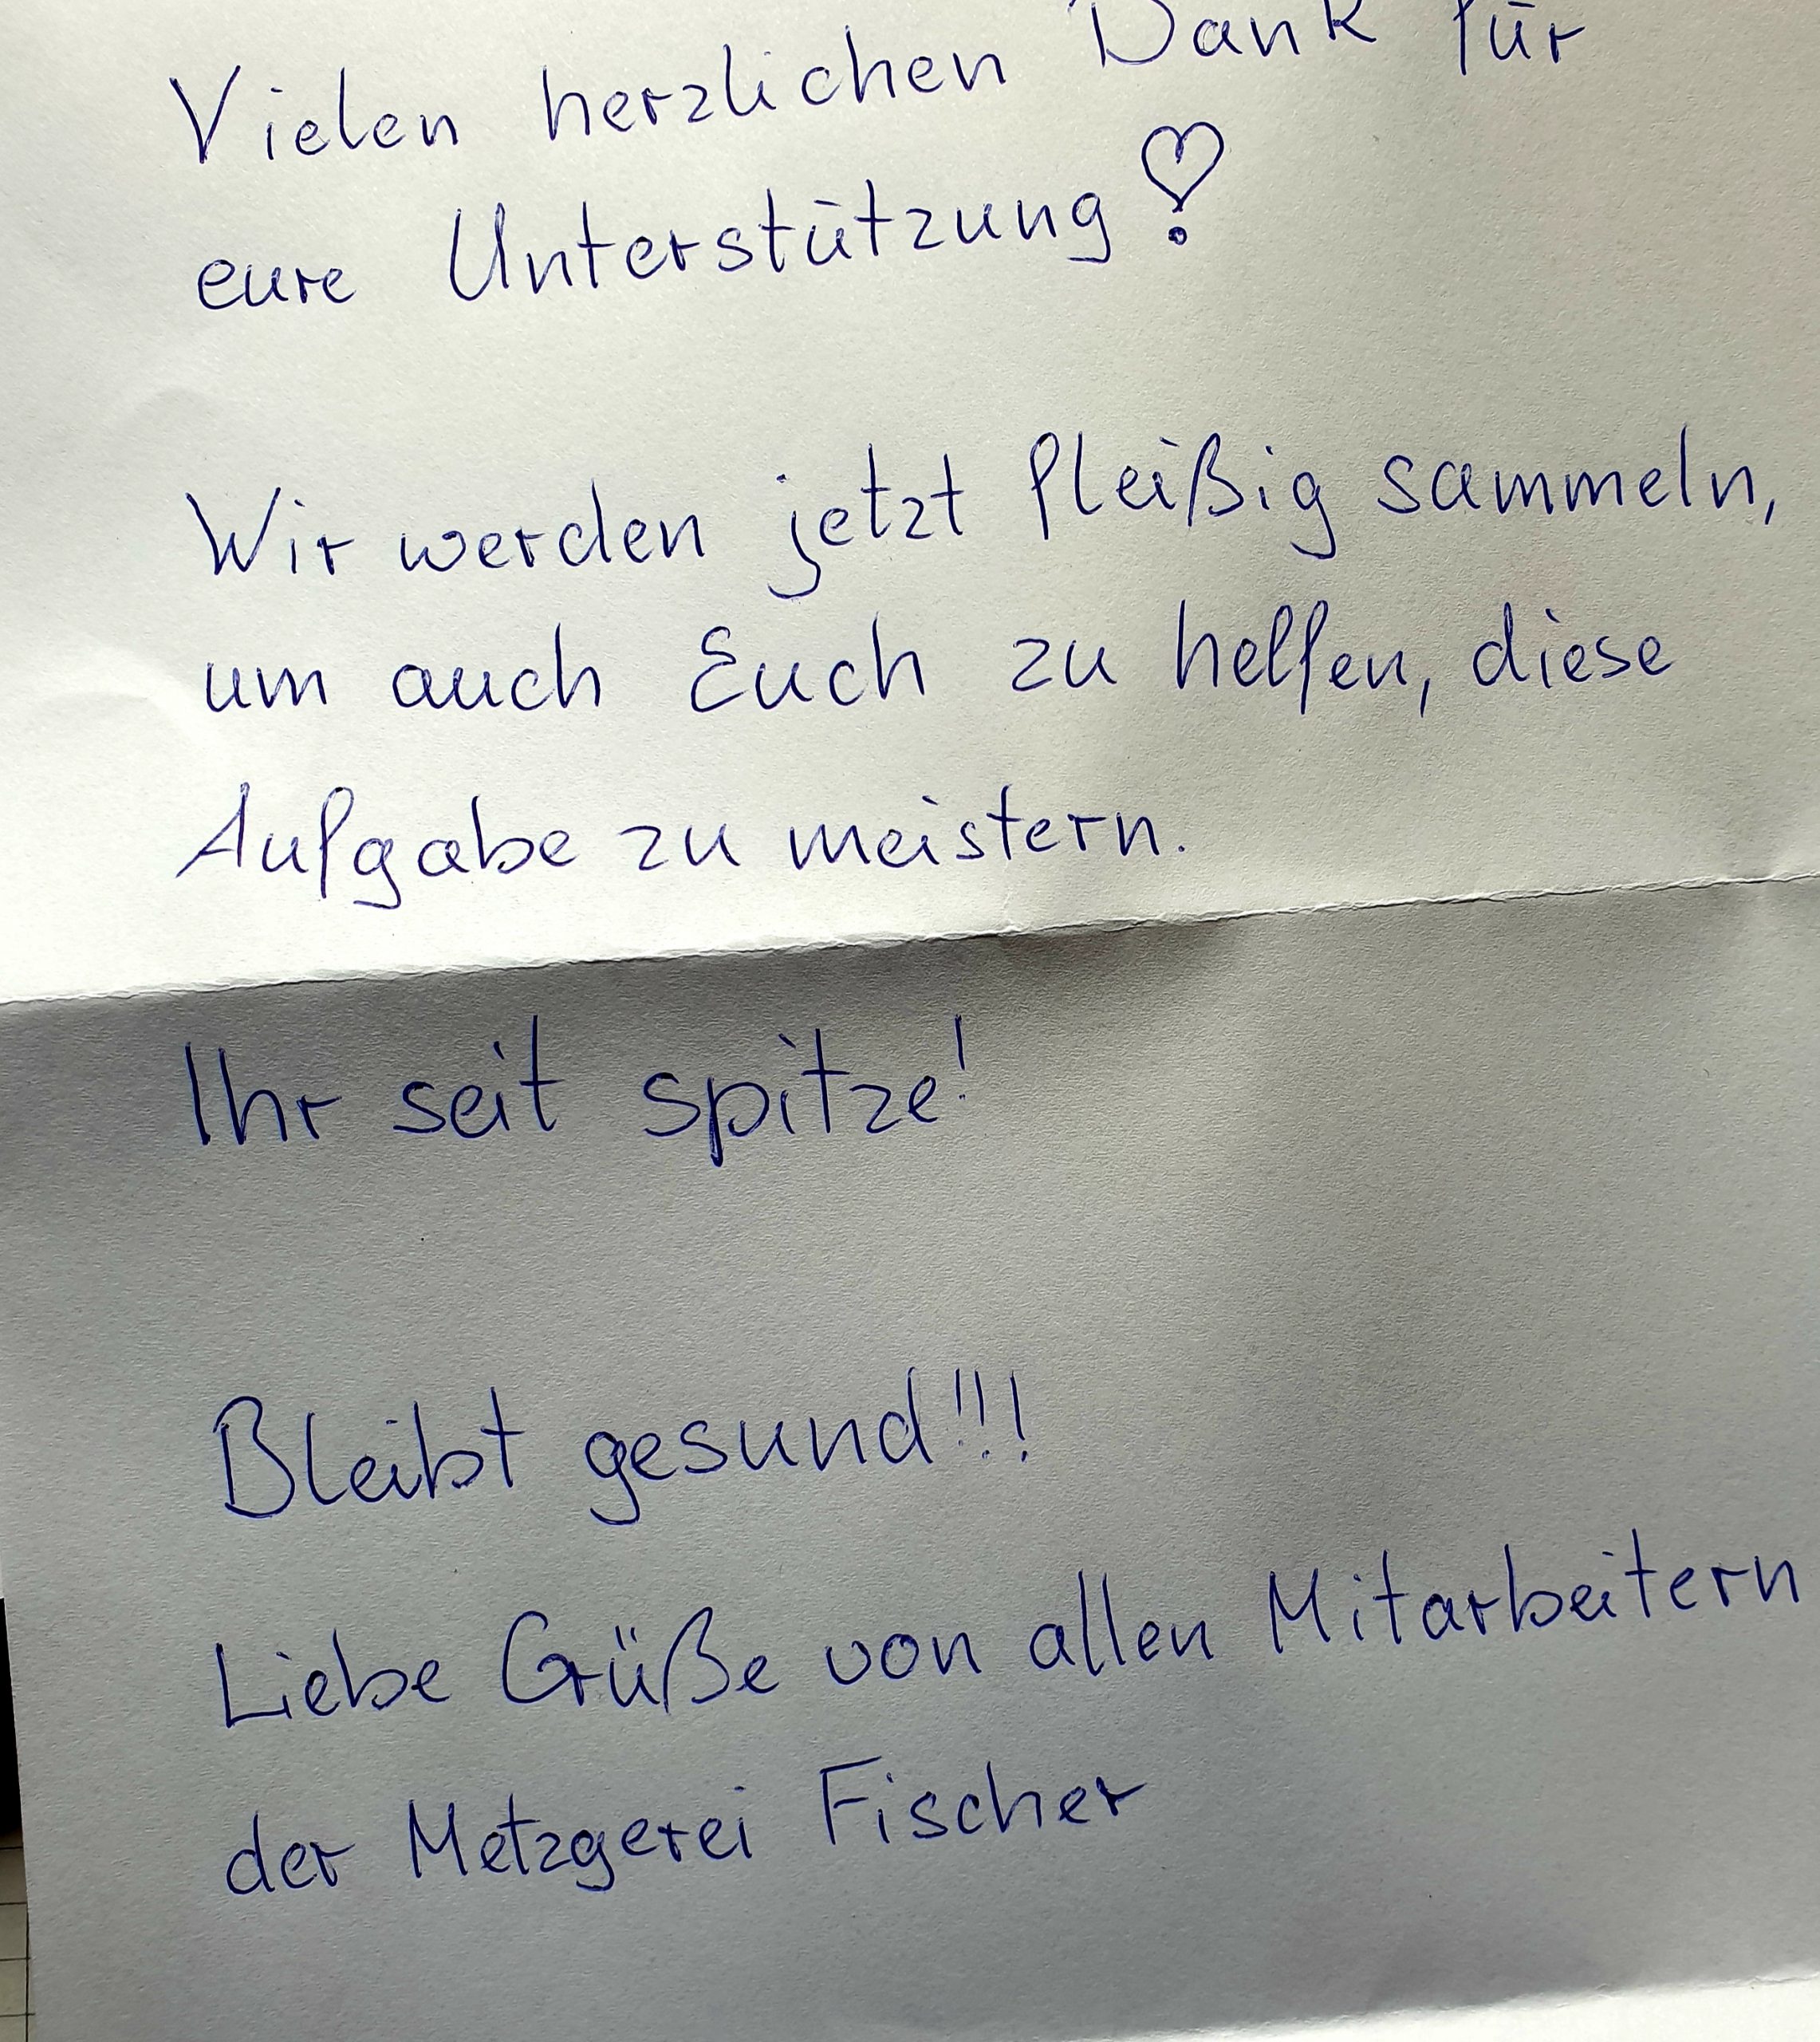 Vielen herzlichen Dank für
eure Unterstützung!
Wir werden jetzt fleißig sammeln,
um auch Euch zu helfen, diese
Aufgabe zu meistern.
Ihr seit spitze!
Bleibt gesund!!!
Liebe Grüße von allen Mitarbeitern
der Metzgerei Fischer